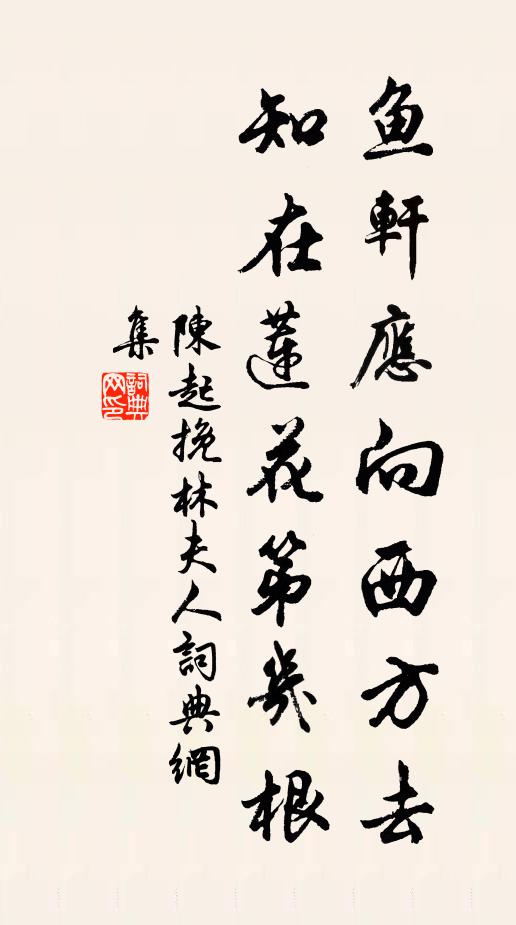 魚軒應向西方去
知在蓮花第幾根
陳起挽林夫人詞典網
集
詞典
网印